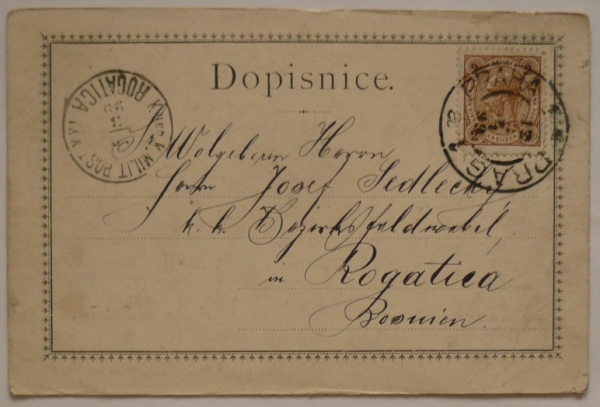 Dopisnice.
K. UND K. MILIT. POST XXI
ROGATICA
99
PRAHA
PRAG
Wolgeboren Herrn
Herrn Josef Sedlecky
k. k. Bezirksfeldwebel,
in Rogatica
Bosnien.